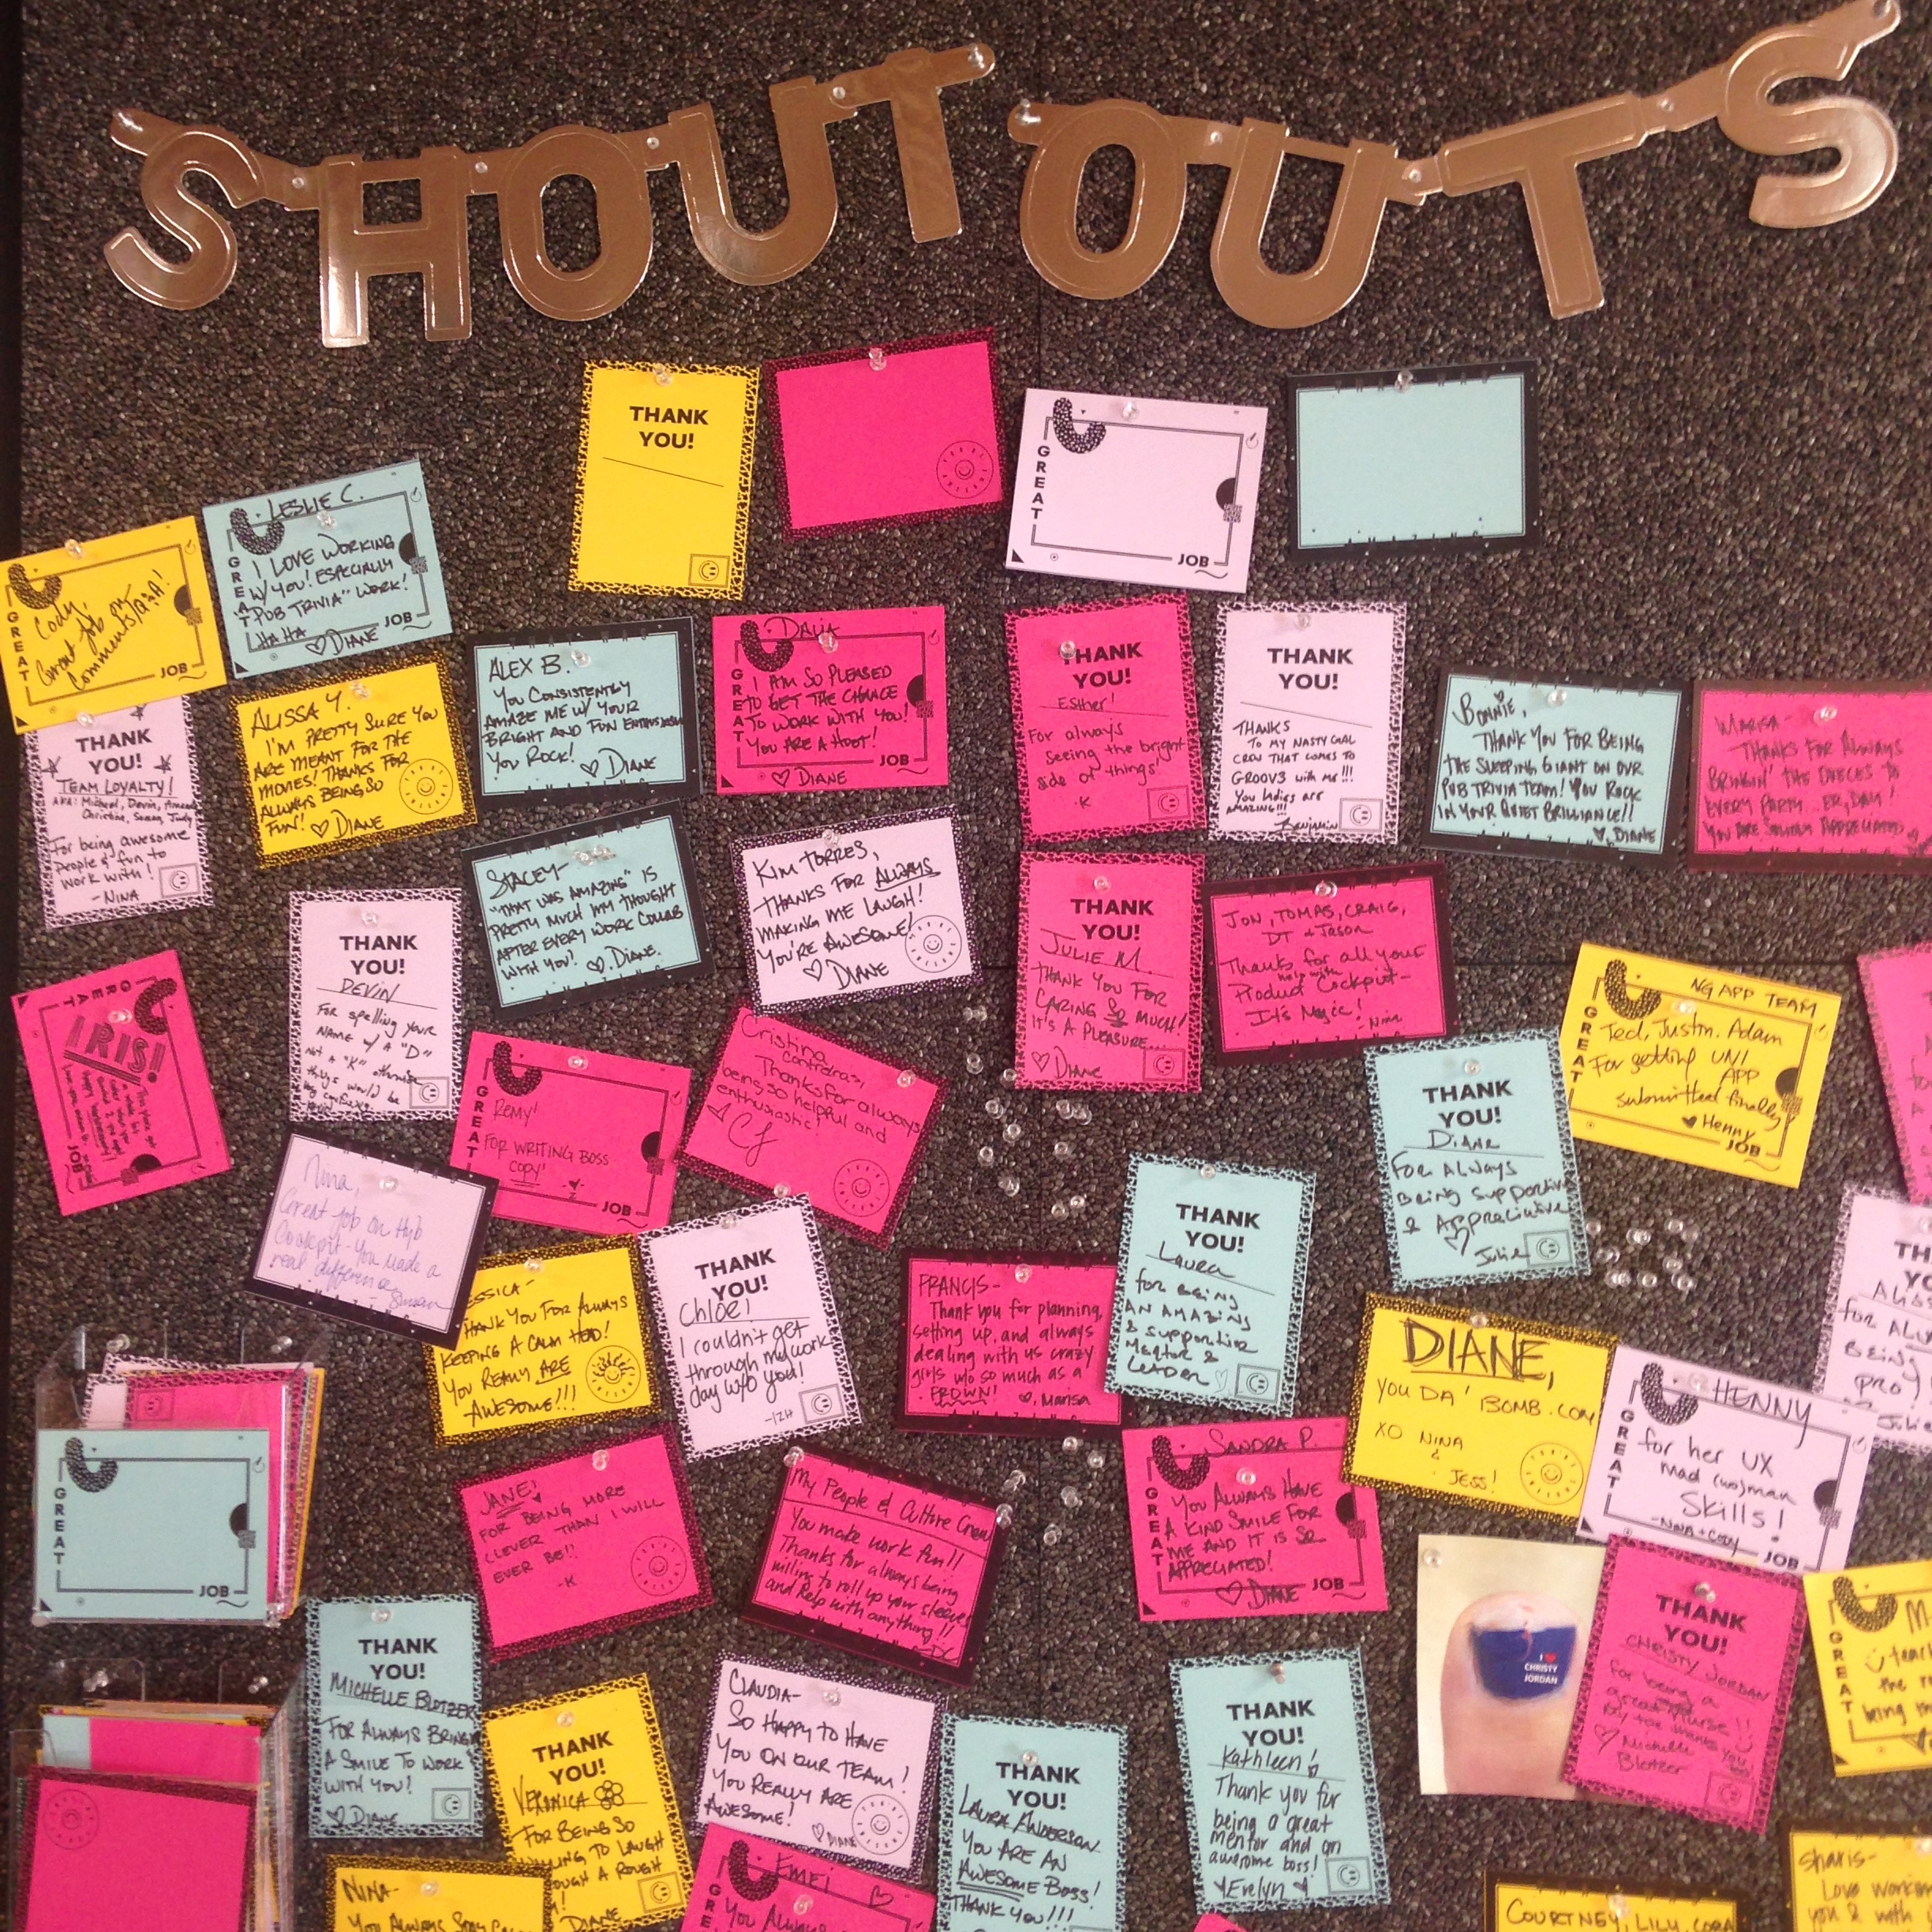 SHOUT OUTS
THANK
YOU!
GREAT
JOB
LESLIE C.
I LOVE WORKING
W/ YOU! ESPECIALLY
"PUB TRIVIA" WORK!
HAHA ♡ DIANE
GREAT
JOB
Cody,
Great job on
Comments/Q&A!
GREAT
JOB
ALISSA Y.
I'M PRETTY SURE YOU
ARE MEANT FOR THE
MOVIES! THANKS FOR
ALWAYS BEING SO
FUN! ♡ DIANE
ALEX B.
YOU CONSISTENTLY
AMAZE ME W/ YOUR
BRIGHT AND FUN ENTHUSIASM
YOU ROCK! ♡ DIANE
DALIA
I AM SO PLEASED
TO GET THE CHANCE
TO WORK WITH YOU!
YOU ARE A HOOT!
♡ DIANE
GREAT
JOB
THANK
YOU!
Esther!
For always
seeing the bright
side of things!
-K
THANK
YOU!
THANKS
TO MY NASTY GAL
CREW THAT COMES TO
GROOV3 with me!!!
You ladies are
AMAZING!!!
Benjamin
BONNIE,
THANK YOU FOR BEING
THE SLEEPING GIANT ON OUR
PUB TRIVIA TEAM! YOU ROCK
IN YOUR QUIET BRILLIANCE!!
♡ DIANE
MARISA-
THANKS FOR ALWAYS
BRINGIN' THE DUECES TO
EVERY PARTY... ER, DAY!
YOU ARE SOLIDLY APPRECIATED
THANK
YOU!
TEAM LOYALTY!
AKA: Michael, Devin, Amanda
Christine, Susan, Judy
For being awesome
people & fun to
work with!
-NINA
STACEY-
"THAT WAS AMAZING" IS
PRETTY MUCH MY THOUGHT
AFTER EVERY WORK COLLAB
WITH YOU! ♡ DIANE
KIM TORRES,
THANKS FOR ALWAYS
MAKING ME LAUGH!
YOU'RE AWESOME!
♡ DIANE
THANK
YOU!
JULIE M.
THANK YOU FOR
CARING SO MUCH!
IT'S A PLEASURE...
♡ DIANE
JON, TOMAS, CRAIG,
DT + Jason
Thanks for all your
help with
Product Cockpit-
It's Magic!
-Nina
NG APP TEAM
Ted, Justin, Adam
For getting UNI
APP
submitted finally
♥ Henny
GREAT
JOB
IRIS!
GREAT
JOB
THANK
YOU!
DEVIN
For spelling your
NAME w/ A "D"
not A "K" otherwise
things would be
REMY!
FOR WRITING BOSS
COPY!
GREAT
JOB
Cristina
Contreras,
Thanks for always
being so helpful and
enthusiastic!
♡ CJ
THANK
YOU!
DIANE
FOR ALWAYS
Being supportive
& APPreciative
♡ Julie
Nina,
Great job on Hyb
Cockpit - You made a
real difference
- Susan
ESSICA-
HANK YOU FOR ALWAYS
KEEPING A CALM HEAD!
YOU REALLY ARE
AWESOME!!!
THANK
YOU!
Chloe!
I couldn't get
through my work
day w/o you!
-IZH
FRANCIS-
Thank you for planning,
setting up, and always
dealing with us crazy
girls w/o so much as a
FROWN! ♡, Marisa
THANK
YOU!
Laura
for Being
AN AMAZING
& supportive
Mentor &
LEADER ♡
DIANE,
YOU DA' BOMB.COM
XO NINA
&
JESS!
HENNY
for her UX
mad (wo)man
Skills!
-NINA + CODY
GREAT
JOB
for Al
Being
pro!
Julie
GREAT
JOB
JANE!
FOR BEING MORE
CLEVER THAN I WILL
EVER BE!!
-K
My People & Culture Crew
You make work fun!!
Thanks for always being
willing to roll up your sleeves
and help with anything!!
SANDRA P.
YOU ALWAYS HAVE
A KIND SMILE FOR
ME AND IT IS SO
APPRECIATED!
♡ DIANE
GREAT
JOB
I ♥
CHRISTY
JORDAN
THANK
YOU!
CHRISTY JORDAN
for being a
great nurse!!
♡ Michelle
Blotzer
GREAT
THANK
YOU!
MICHELLE BLOTZER
FOR ALWAYS BRINGING
A SMILE TO WORK
WITH YOU!
♡ DIANE
THANK
YOU!
VERONICA
FOR BEING SO
TO LAUGH
A ROUGH
DIANE
CLAUDIA-
SO HAPPY TO HAVE
YOU ON OUR TEAM!
YOU REALLY ARE
AWESOME!
♡ DIANE
THANK
YOU!
LAURA ANDERSON
YOU ARE AN
AWESOME BOSS!
THANK YOU!!!
THANK
YOU!
Kathleen
Thank you for
being a great
mentor and an
awesome boss!
♥ Evelyn ♥
NINA-
YOU ALWAYS STAY
EMEI
YOU ALWAYS
COURTNEY, LILY, CORA
Sharis-
Love working
you & with